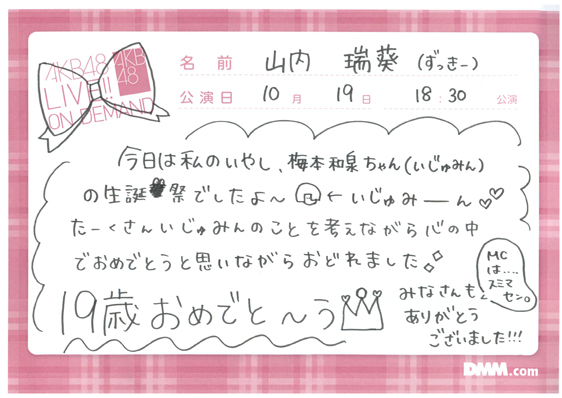 AKB48 AKB48
LIVE!!
ON DEMAND
名前 山内 瑞葵 (ずっきー)
公演日 10月 19日 18:30 公演
今日は私のいやし、梅本和泉ちゃん(いじゅみん)
の生誕祭でしたよ〜 ←いじゅみーん♡♡
たーくさんいじゅみんのことを考えながら心の中
でおめでとうと思いながらおどれました
MC
は....
スミマ
セン。
19歳おめでと〜う
みなさんも
ありがとう
ございました!!!
DMM.com